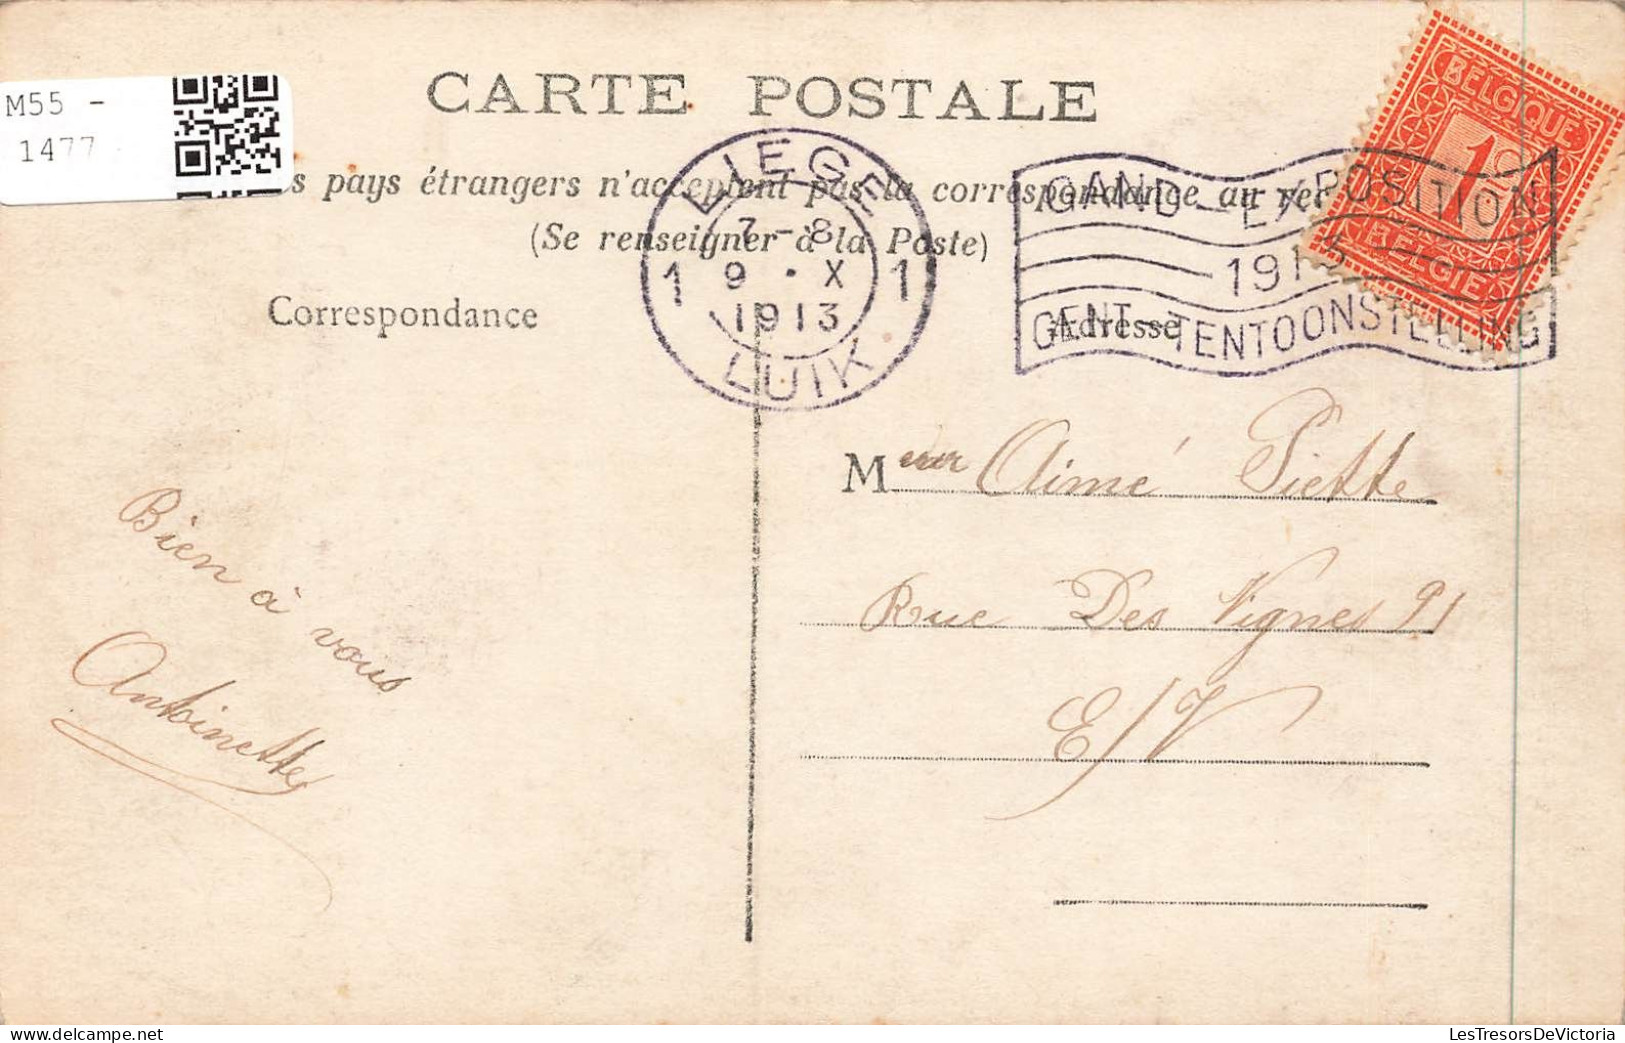 M55 -
1477
CARTE POSTALE
s pays étrangers n'acceptent pas la correspondance au ver
(Se renseigner à la Poste)
LIEGE
7-8
1 9 · X 1
1913
LUIK
GAND - EXPOSITION
1913
GENT - TENTOONSTELLING
BELGIQUE
1c
BELGIE
Correspondance
Adresse
Bien à vous
Antoinette
Meur Aimé Piette
Rue Des Vignes 91
E/V
LesTresorsDeVictoria